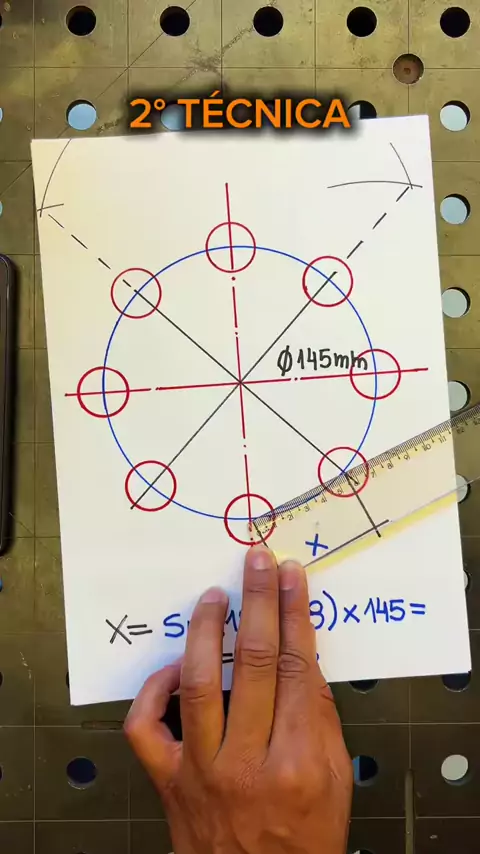 2° TÉCNICA
Ø145mm
x
X= S 8)x145=
=